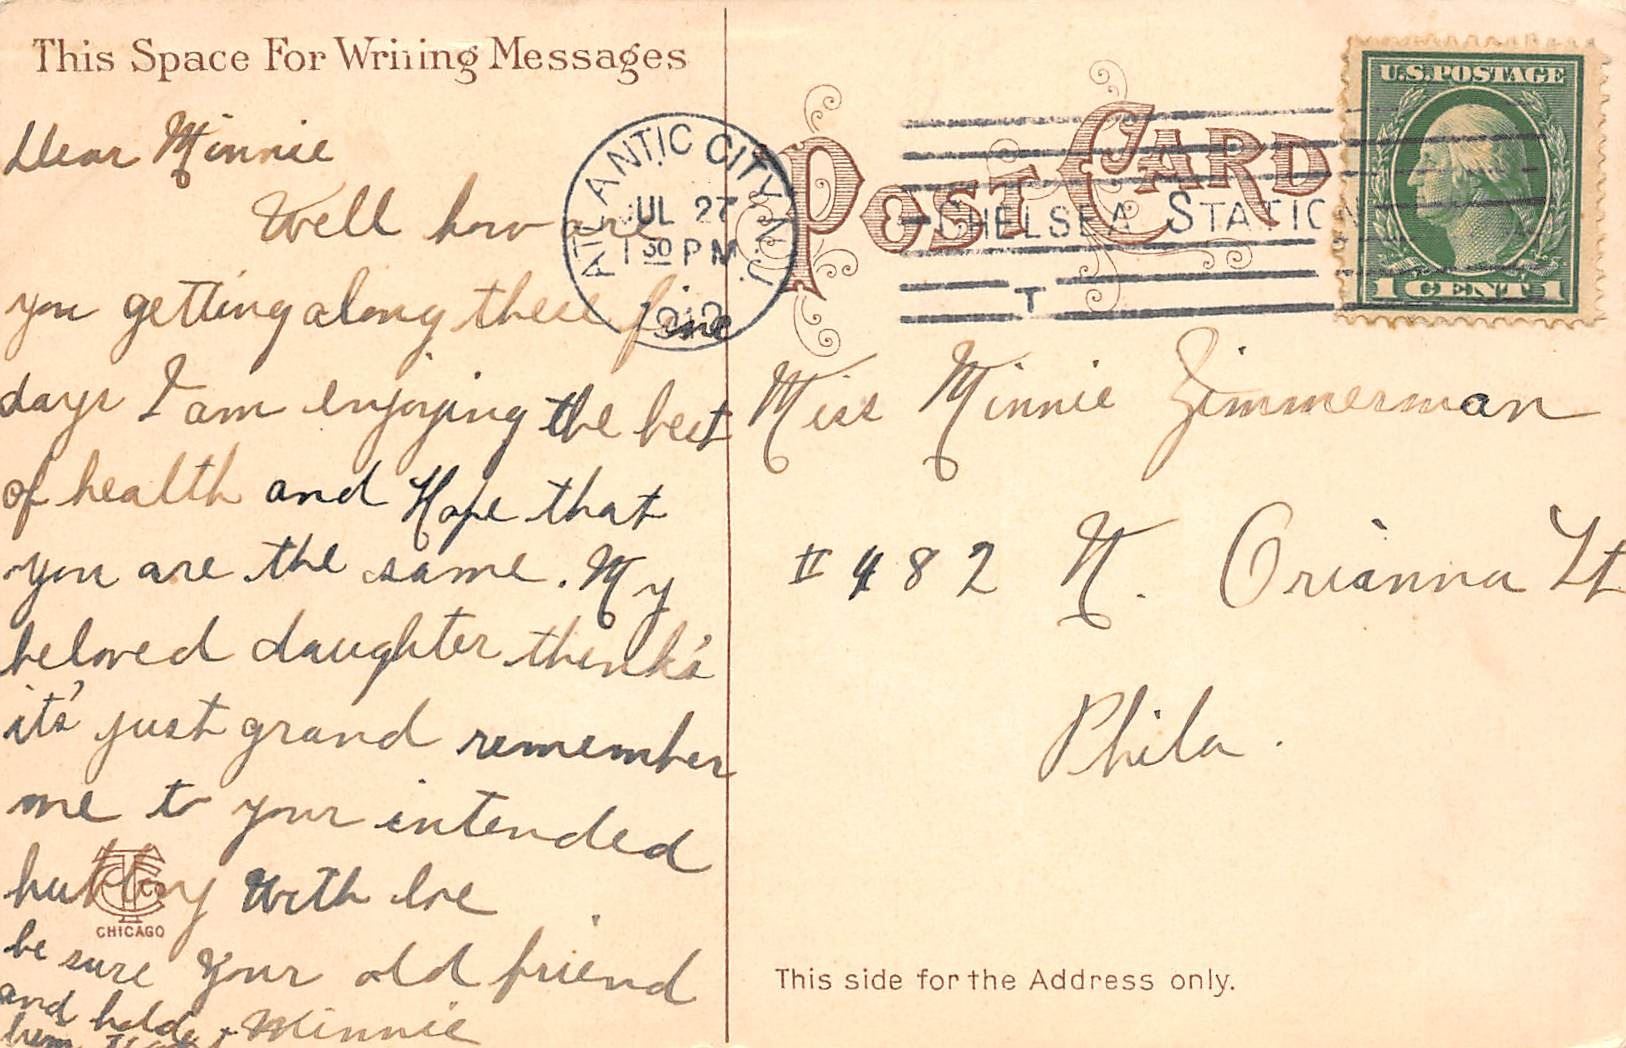 This Space For Writing Messages
Dear Minnie
Well how are
you getting along these fine
days I am enjoying the best
of health and Hope that
you are the same. My
beloved daughter think's
it's just grand remember
me to your intended
hubby With love
your old friend
Minnie
be sure
and holde
him
CHICAGO
ATLANTIC CITY, N.J.
JUL 27
1 30 PM
1912
POST CARD
CHELSEA STATION
T
U.S. POSTAGE
1 CENT 1
Miss Minnie Zimmerman
# 482 N. Orianna St
Phila.
This side for the Address only.